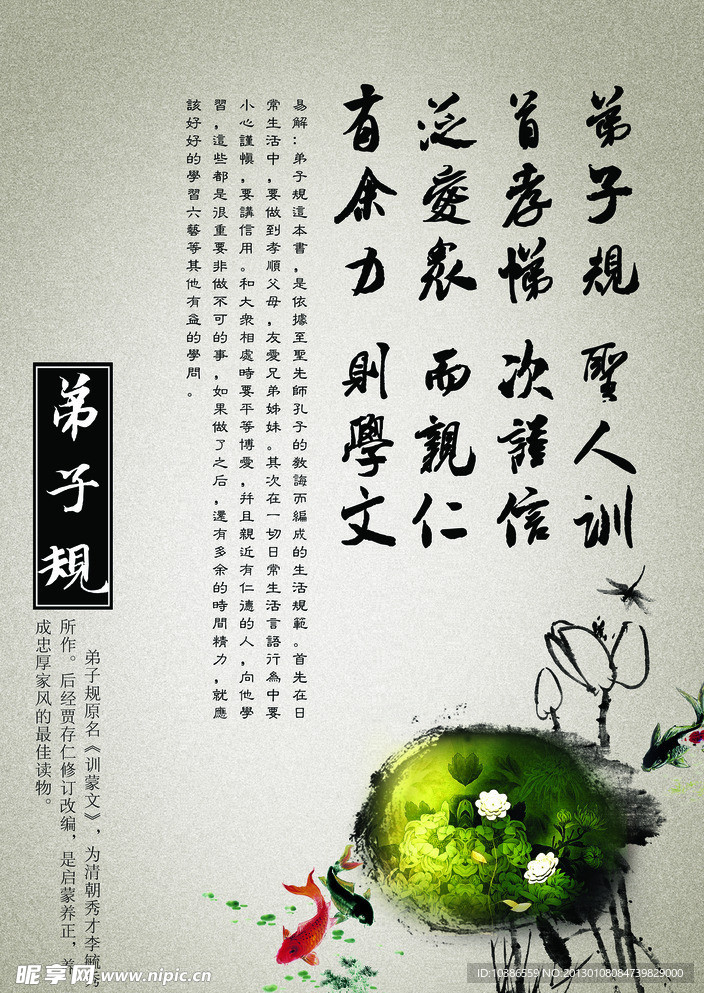 弟子規 聖人訓
首孝悌 次謹信
泛愛衆 而親仁
有余力 則學文
易解：弟子規這本書，是依據至聖先師孔子的教誨而編成的生活規範。首先在日
常生活中，要做到孝順父母，友愛兄弟姊妹。其次在一切日常生活言語行為中要
小心謹慎，要講信用。和大衆相處時要平等博愛，并且親近有仁德的人，向他學
習，這些都是很重要非做不可的事，如果做了之后，還有多余的時間精力，就應
該好好的學習六藝等其他有益的學問。
弟子規
弟子规原名《训蒙文》，为清朝秀才李毓秀
所作。后经贾存仁修订改编，是启蒙养正，养
成忠厚家风的最佳读物。
昵享网 www.nipic.cn
ID:10386559 NO:20130108084739829000